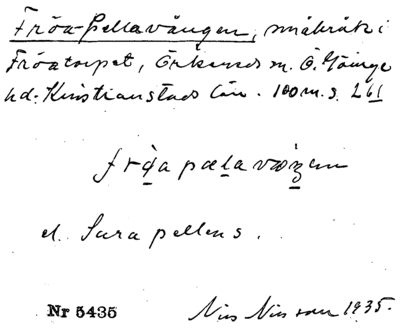 Fröa-Pellavången, småkräk i
Fröatorpet, Örkeneds sn. Ö. Göinge
hd. Kristianstads län. 100 m. s. 261
el. Sura pellens.
Nr 5435 Nils Nilsson 1935.